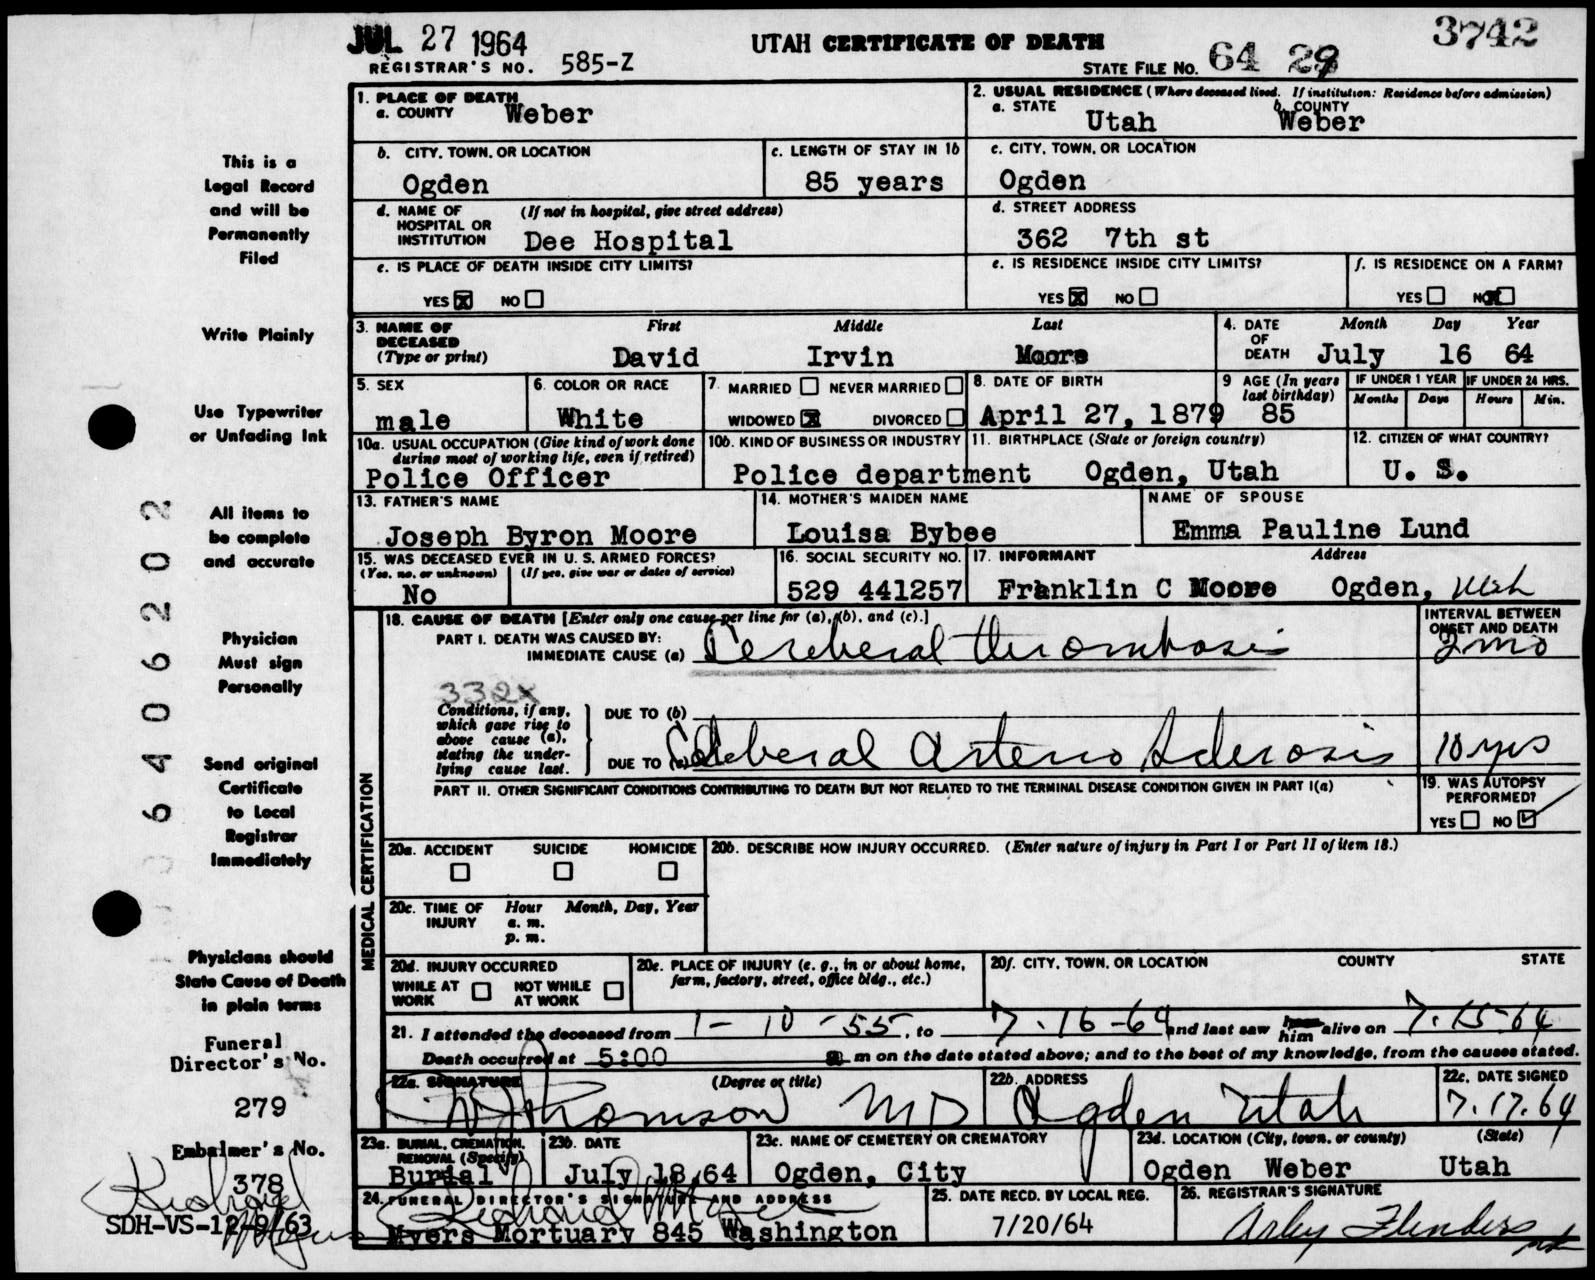 JUL 27 1964
UTAH CERTIFICATE OF DEATH
3742
REGISTRAR'S NO. 585-Z
STATE FILE NO. 64 29
1. PLACE OF DEATH
a. COUNTY Weber
2. USUAL RESIDENCE (Where deceased lived. If institution: Residence before admission)
a. STATE Utah b. COUNTY Weber
b. CITY, TOWN, OR LOCATION Ogden
c. LENGTH OF STAY IN 1b 85 years
c. CITY, TOWN, OR LOCATION Ogden
d. NAME OF HOSPITAL OR INSTITUTION (If not in hospital, give street address) Dee Hospital
d. STREET ADDRESS 362 7th st
e. IS PLACE OF DEATH INSIDE CITY LIMITS? YES X NO
e. IS RESIDENCE INSIDE CITY LIMITS? YES X NO
f. IS RESIDENCE ON A FARM? YES NO X
3. NAME OF DECEASED (Type or print) First Middle Last
David Irvin Moore
4. DATE OF DEATH Month Day Year
July 16 64
5. SEX male
6. COLOR OR RACE White
7. MARRIED NEVER MARRIED
WIDOWED X DIVORCED
8. DATE OF BIRTH April 27, 1879
9 AGE (In years last birthday) 85
IF UNDER 1 YEAR Months Days
IF UNDER 24 HRS. Hours Min.
10a. USUAL OCCUPATION (Give kind of work done during most of working life, even if retired)
Police Officer
10b. KIND OF BUSINESS OR INDUSTRY
Police department
11. BIRTHPLACE (State or foreign country)
Ogden, Utah
12. CITIZEN OF WHAT COUNTRY?
U. S.
13. FATHER'S NAME
Joseph Byron Moore
14. MOTHER'S MAIDEN NAME
Louisa Bybee
NAME OF SPOUSE
Emma Pauline Lund
15. WAS DECEASED EVER IN U. S. ARMED FORCES?
(Yes, no, or unknown) (If yes, give war or dates of service)
No
16. SOCIAL SECURITY NO.
529 441257
17. INFORMANT Address
Franklin C Moore Ogden, Utah
MEDICAL CERTIFICATION
18. CAUSE OF DEATH [Enter only one cause per line for (a), (b), and (c).]
INTERVAL BETWEEN ONSET AND DEATH
PART I. DEATH WAS CAUSED BY:
IMMEDIATE CAUSE (a) Cerebral thrombosis 2 mo
332x
Conditions, if any, which gave rise to above cause (a), stating the underlying cause last.
DUE TO (b)
DUE TO (c) Cerebral Arterio Sclerosis 10 yrs
PART II. OTHER SIGNIFICANT CONDITIONS CONTRIBUTING TO DEATH BUT NOT RELATED TO THE TERMINAL DISEASE CONDITION GIVEN IN PART I(a)
19. WAS AUTOPSY PERFORMED?
YES NO ✓
20a. ACCIDENT SUICIDE HOMICIDE
20b. DESCRIBE HOW INJURY OCCURRED. (Enter nature of injury in Part I or Part II of item 18.)
20c. TIME OF INJURY Hour Month, Day, Year
a. m.
p. m.
20d. INJURY OCCURRED
WHILE AT WORK NOT WHILE AT WORK
20e. PLACE OF INJURY (e. g., in or about home, farm, factory, street, office bldg., etc.)
20f. CITY, TOWN, OR LOCATION COUNTY STATE
21. I attended the deceased from 1-10-55, to 7-16-64 and last saw him alive on 7-15-64
Death occurred at 5:00 a m on the date stated above; and to the best of my knowledge, from the causes stated.
22a. SIGNATURE (Degree or title)
Thomson MD
22b. ADDRESS
Ogden Utah
22c. DATE SIGNED
7.17.64
23a. BURIAL, CREMATION, REMOVAL (Specify)
Burial
23b. DATE
July 18, 64
23c. NAME OF CEMETERY OR CREMATORY
Ogden, City
23d. LOCATION (City, town, or county) (State)
Ogden Weber Utah
24. FUNERAL DIRECTOR'S SIGNATURE AND ADDRESS
Richard Myers
Myers Mortuary 845 Washington
25. DATE RECD. BY LOCAL REG.
7/20/64
26. REGISTRAR'S SIGNATURE
Arley Flinders
This is a
Legal Record
and will be
Permanently
Filed
Write Plainly
Use Typewriter
or Unfading Ink
All items to
be complete
and accurate
Physician
Must sign
Personally
Send original
Certificate
to Local
Registrar
Immediately
Physicians should
State Cause of Death
in plain terms
Funeral
Director's No.
279
Embalmer's No.
378
Richard Myers
SDH-VS-12-9/63
6406202